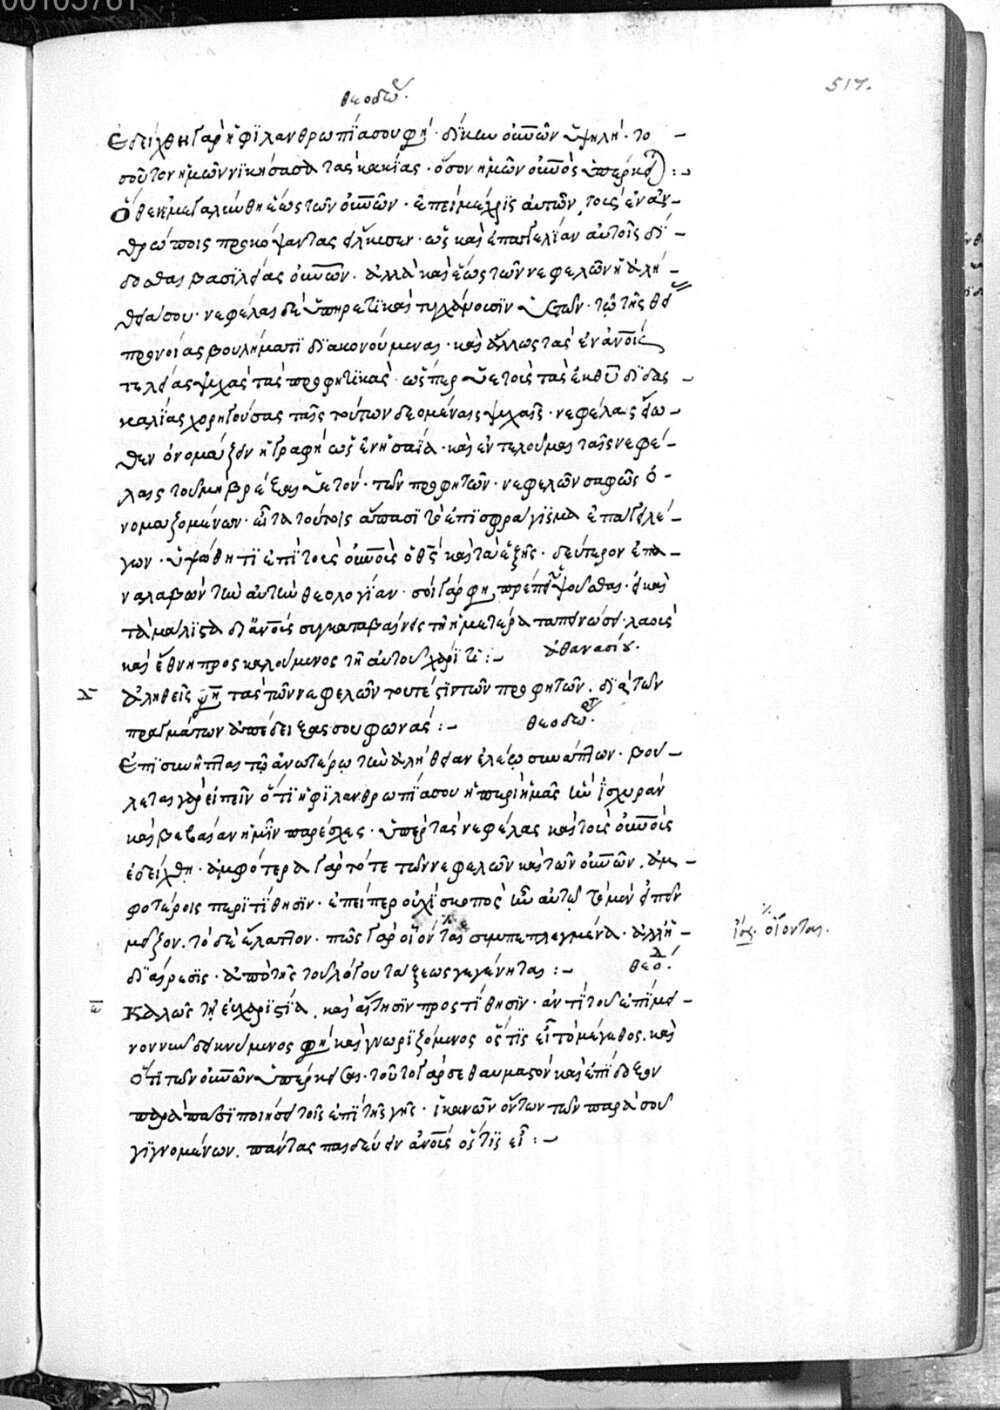 00105761
517.
θεοδώρ.
Ἐδείχθη γὰρ ἡ φιλανθρωπία σου φη · δίκην οὐνῶν ὑψηλή · το
σοῦτον ἡμῶν νικήσασα τὰς κακίας · ὅσον ἡμῶν οὐνὸς ὑπέρκει :
Ὅθεν ἐμεγαλύνθη ἕως τῶν οὐνῶν · ἐπεὶ μέχρις αὐτῶν, τοὺς ἐν ἀν
θρώποις προκόψαντας εἵλκυσεν · ὡς καὶ ἐπαγγελίαν αὐτοῖς δί
δοσθαι βασιλείας οὐνῶν · ἀλλὰ καὶ ἕως τῶν νεφελῶν ἡ ἀλή
θειά σου · νεφέλας δὲ ὑπηρετικὰς τυγχάνουσιν ὑετῶν · τῷ τῆς θεί
προνοίας βουλήματι διακονούμεναι · καὶ ἄλλως τὰς ἐν ἀνοις
τελείας ψυχὰς τὰς προφητικὰς · ὥσπερ ὑετοὺς τὰς ἐκ θῦ διδας
καλίας χορηγούσας ταῖς τούτων δεομέναις ψυχαῖς · νεφέλας εἴω
θεν ὀνομάζειν ἡ γραφὴ ὡς ἐν ἡσαΐα · καὶ ἐντελοῦμαι ταῖς νεφέ
λαις τοῦ μὴ βρέξαι ὑετόν · τῶν προφητῶν · νεφελῶν σαφῶς ὀ
νομαζομένων · εἶτα τούτοις ἅπασι τὸ ἐπισφράγισμα ἐπάγει λέ
γων · ὑψώθητι ἐπὶ τοὺς οὐνοὺς ὁ θς καὶ τὰ ἑξῆς · δεύτερον ἐπα
ναλαβὼν τὴν αὐτὴν θεολογίαν · σοὶ γὰρ φη πρέπει ὑψοῦσθαι · εἰ καὶ
τὰ μάλιστα δι' ἀνους συγκαταβαίνεις τῇ ἡμετέρα ταπεινώσει · λαοὺς
καὶ ἔθνη προσκαλούμενος τῇ αὐτοῦ χάριτι : ἀθανασίου.
Δ ἀληθεῖς φη τὰς τῶν νεφελῶν τουτέστιν τῶν προφητῶν · διὰ τῶν
πραγμάτων ἀπέδειξας σου φωνάς : θεοδώρ.
Ἐπισυνῆπται τῷ ἀνωτέρω τὴν ἀλήθειαν ἐλέῳ συνάπτων · βού
λεται γὰρ εἰπεῖν ὅτι ἡ φιλανθρωπία σου ἡ περὶ ἡμᾶς ἣν ἰσχυρὰν
καὶ βεβαίαν ἡμῖν παρέσχες · ὑπὲρ τὰς νεφέλας καὶ τοὺς οὐνοὺς
ἐδείχθη · ἀμφότερα γὰρ τότε τῶν νεφελῶν καὶ τῶν οὐνῶν · ἀμ
φοτέροις περιτίθησιν · ἐπείπερ οὐχὶ σκοπὸς ἦν αὐτῷ τὸ μὲν εἰπεῖν
μεῖζον · τὸ δὲ ἔλαττον · πῶς γὰρ οἷόν τε συμπεπλεγμένα · ἀλλ' ἡ
ἴσως · οἴονται.
διαίρεσις · ἀπὸ τῆς τοῦ λόγου τάξεως γεγένηται : θεοδ.
ε Καλῶς τῇ εὐχαριστία, καὶ αἴτησιν προστίθησιν · ἀντὶ τοῦ ἐπίμει
νον νῦν δεικνύμενος φη καὶ γνωριζόμενος ὅστις εἶ τὸ μέγεθος · καὶ
ὅτι τῶν οὐνῶν ὑπέρκεισαι · τοῦτο γάρ σε θαυμαστὸν καὶ ἐπίδοξον
παρὰ πᾶσι ποιήσει τοῖς ἐπὶ τῆς γῆς · ἱκανῶν ὄντων τῶν παρὰ σοῦ
γιγνομένων, πάντας παιδεύειν ἀνους ὅστις εἶ :